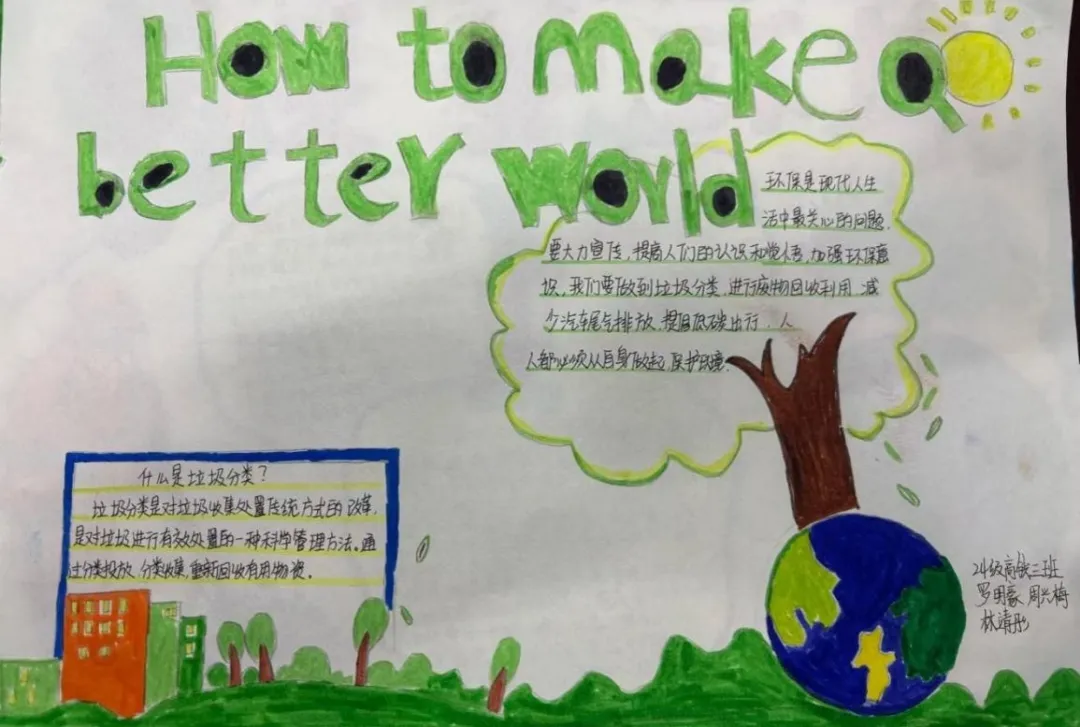 How to make a
better world
环保是现代人生
活中最关心的问题,
要大力宣传,提高人们的认识和觉悟,加强环保意
识,我们要做到垃圾分类,进行废物回收利用,减
少汽车尾气排放,提倡低碳出行,人
人都必须从自身做起,保护环境。
什么是垃圾分类?
垃圾分类是对垃圾收集处置传统方式的改革,
是对垃圾进行有效处置的一种科学管理方法。通
过分类投放、分类收集,重新回收有用物资。
24级高铁二班
罗明豪 周兴梅
林清彤